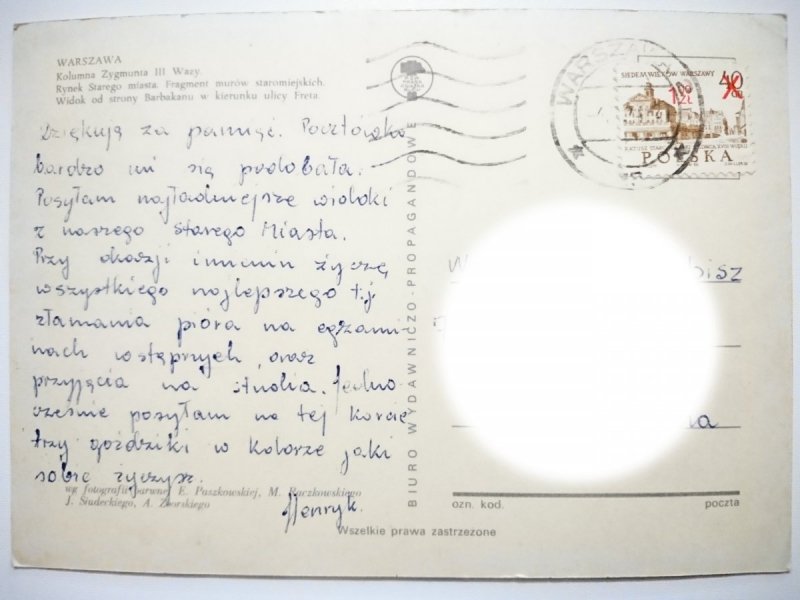 WARSZAWA
Kolumna Zygmunta III Wazy.
Rynek Starego miasta. Fragment murów staromiejskich.
Widok od strony Barbakanu w kierunku ulicy Freta.
Dziękuję za pamięć. Pocztówka
bardzo mi się podobała.
Posyłam najładniejsze widoki
z naszego starego Miasta.
Przy okazji imienin życzę
wszystkiego najlepszego t.j.
złamania pióra na egzami-
nach wstępnych, oraz
przyjęcia na studia. Jedno-
cześnie posyłam na tej karcie
trzy goździki w kolorze jaki
sobie życzysz.
Henryk.
wg fotografii barwnej E. Puszkowskiej, M. Raczkowskiego
J. Siudeckiego, A. Zborskiego
BIURO WYDAWNICZO-PROPAGANDOWE
Wszelkie prawa zastrzeżone
WARSZAWA
SIEDEM WIEKÓW WARSZAWY
40
1 zł
POLSKA
W
bisz
na
ozn. kod.
poczta